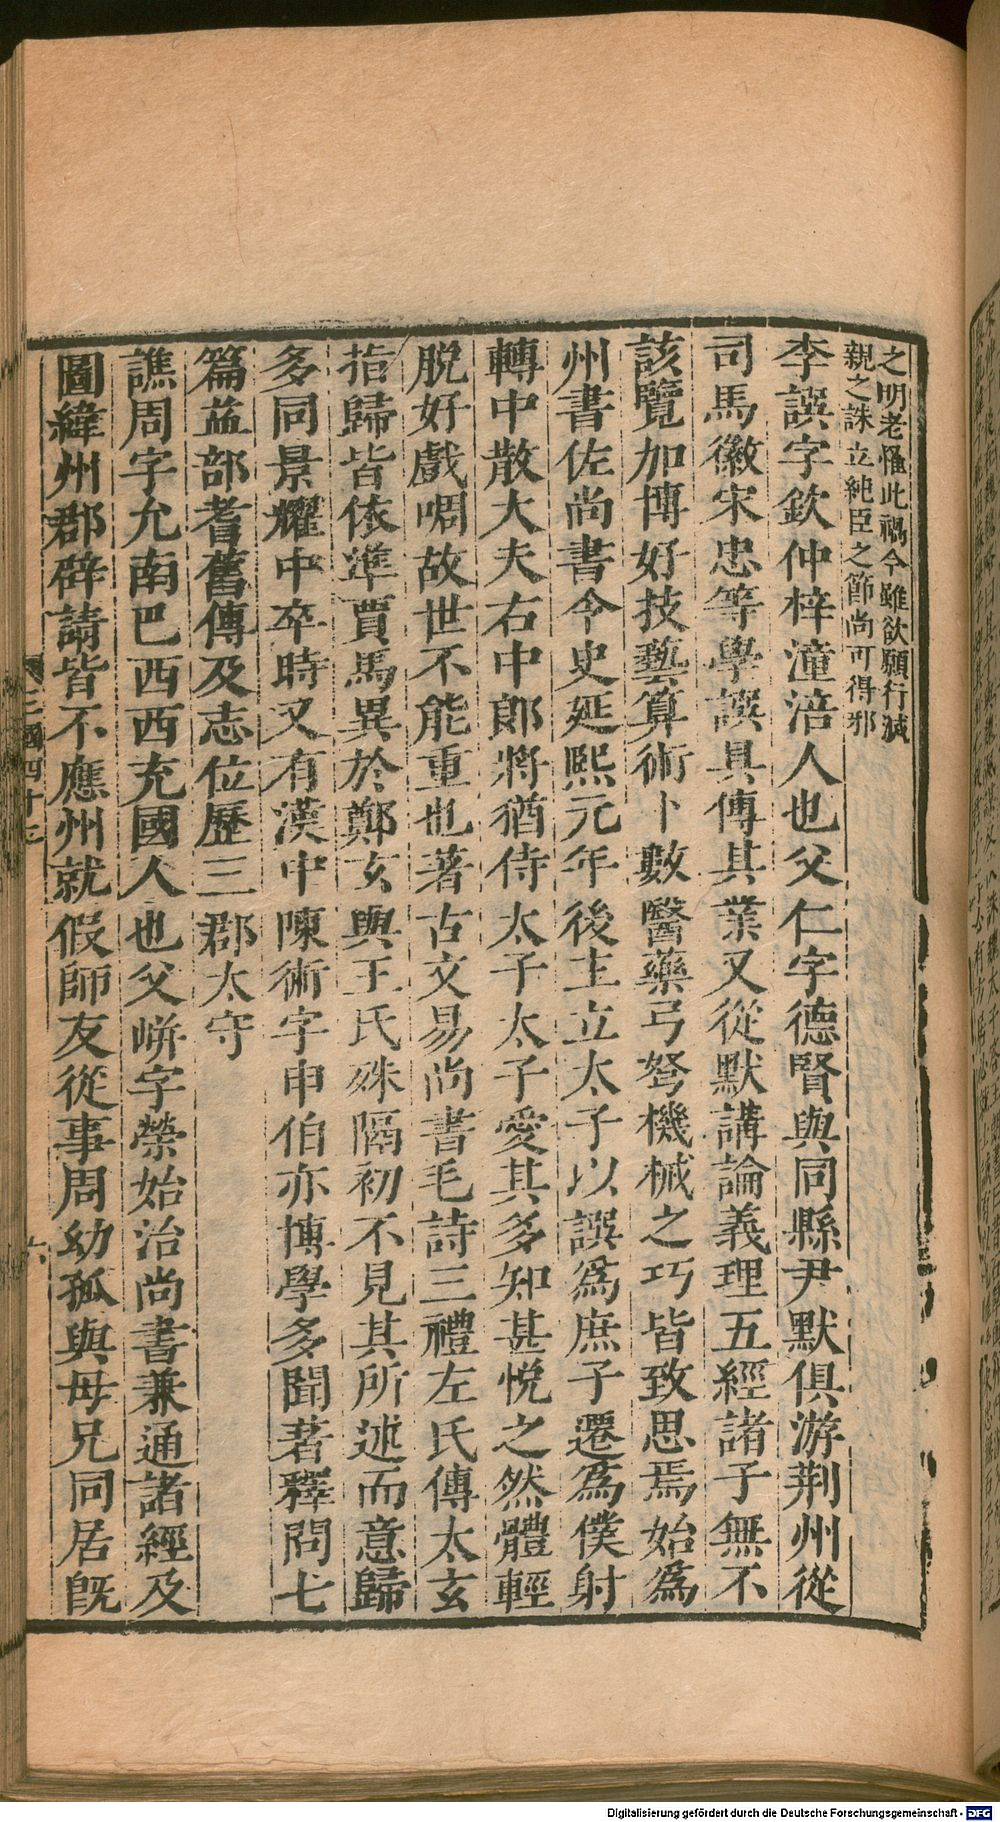 之明老懂此禍今雖欲願行滅
親之誅立純臣之節尚可得邪
李譔字欽仲梓潼涪人也父仁字德賢與同縣尹默俱游荆州從
司馬徽宋忠等學譔具傳其業又從默講論義理五經諸子無不
該覽加博好技藝算術卜數醫藥弓弩機械之巧皆致思焉始爲
州書佐尚書令史延熙元年後主立太子以譔爲庶子遷爲僕射
轉中散大夫右中郎將猶侍太子太子愛其多知甚悅之然體輕
脱好戲啁故世不能重也著古文易尚書毛詩三禮左氏傳太玄
指歸皆依準賈馬異於鄭玄與王氏殊隔初不見其所述而意歸
多同景耀中卒時又有漢中陳術字申伯亦博學多聞著釋問七
篇益部耆舊傳及志位歷三郡太守
譙周字允南巴西西充國人也父𡸫字榮始治尚書兼通諸經及
圖緯州郡辟請皆不應州就假師友從事周幼孤與母兄同居旣
三國四十二
六
Digitalisierung gefördert durch die Deutsche Forschungsgemeinschaft - DFG